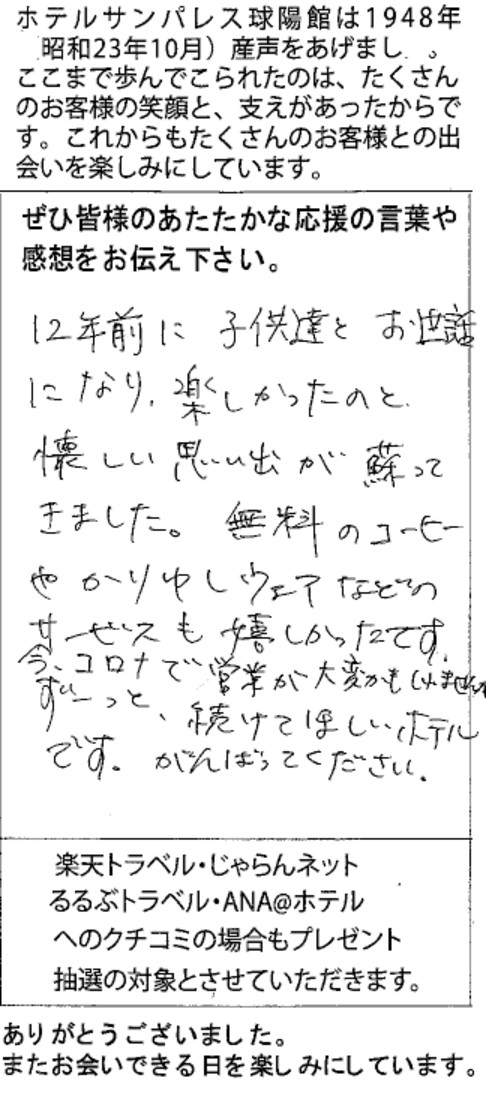 ホテルサンパレス球陽館は1948年
昭和23年10月）産声をあげまし 。
ここまで歩んでこられたのは、たくさん
のお客様の笑顔と、支えがあったからで
す。これからもたくさんのお客様との出
会いを楽しみにしています。
ぜひ皆様のあたたかな応援の言葉や
感想をお伝え下さい。
12年前に 子供達と お世話
になり、楽しかったのと、
懐しい思い出が 蘇って
きました。 無料のコーヒー
やかりゆしウェアなどの
サービスも嬉しかったです。
今、コロナで営業が大変かもしれません
ずーっと、続けてほしいホテル
です。がんばってください。
楽天トラベル・じゃらんネット
るるぶトラベル・ANA@ホテル
へのクチコミの場合もプレゼント
抽選の対象とさせていただきます。
ありがとうございました。
またお会いできる日を楽しみにしています。